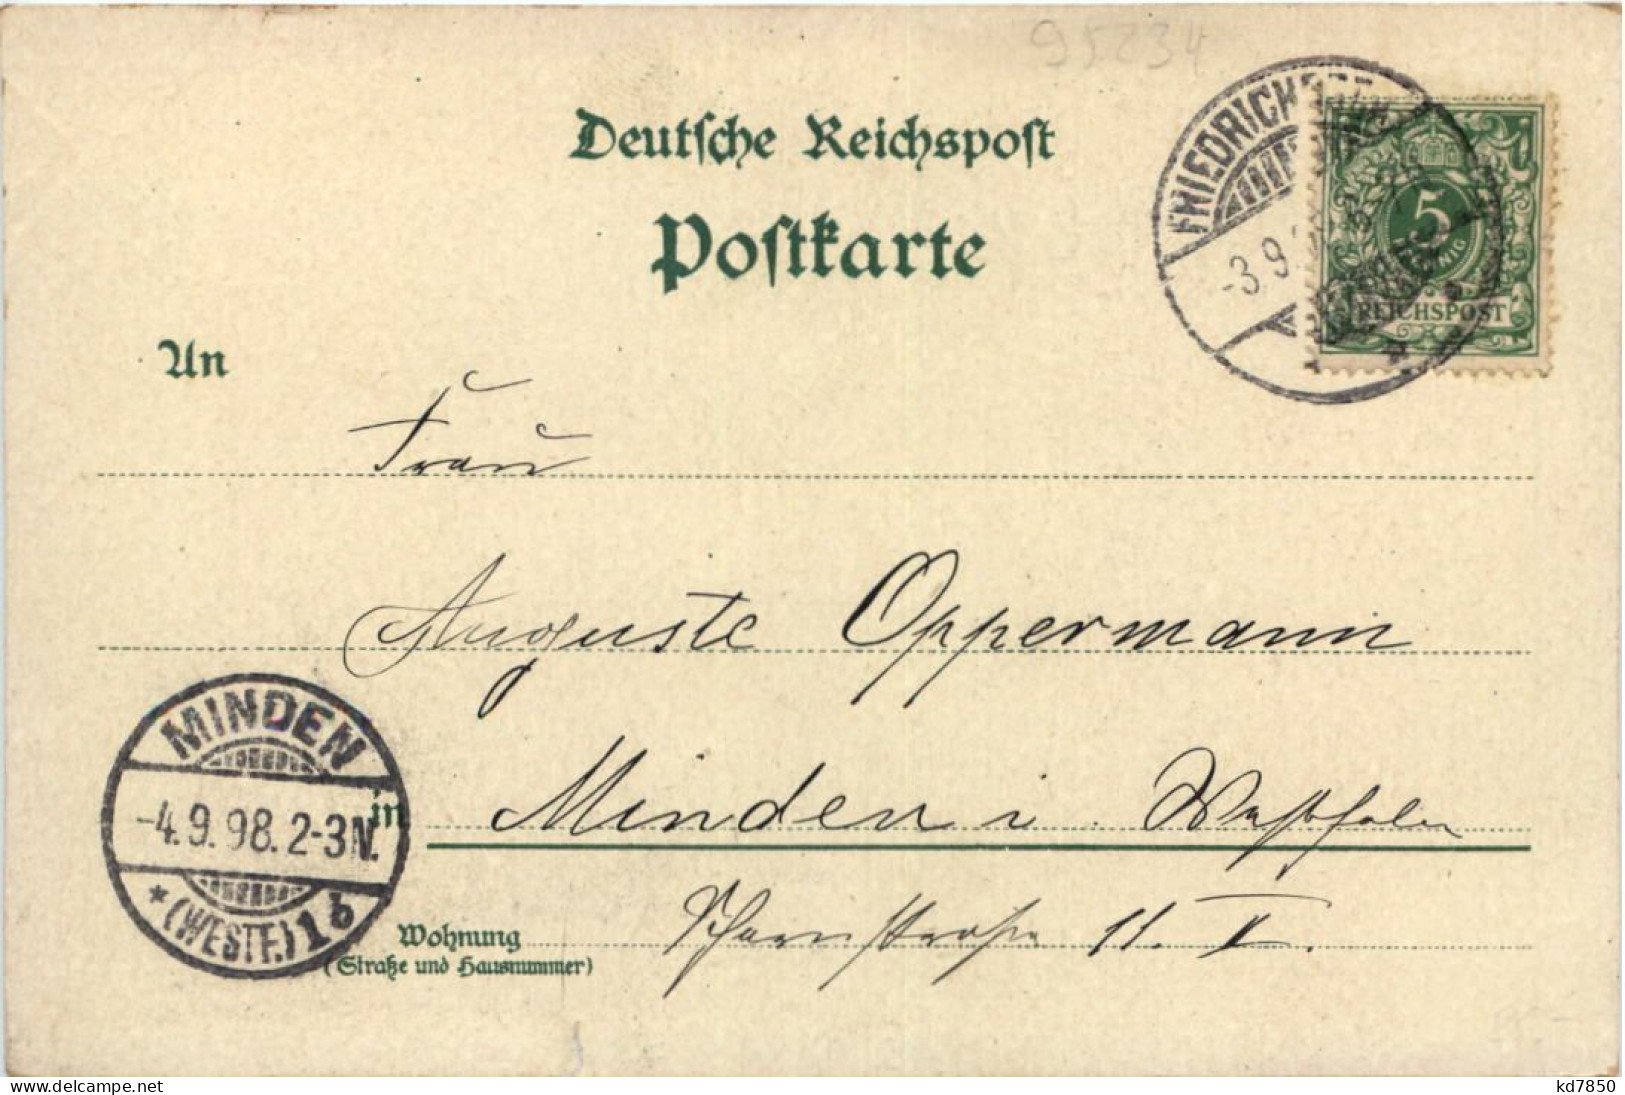 95234
Deutsche Reichspost
Postkarte
FRIEDRICH
-3.9.
5
REICHSPOST
An
Frau
Auguste Oppermann
MINDEN
-4.9.98.2-3N.
(WESTF.) 1b
in
Minden i. Westfalen
Wohnung
(Straße und Hausnummer)
11. II.
kd7850